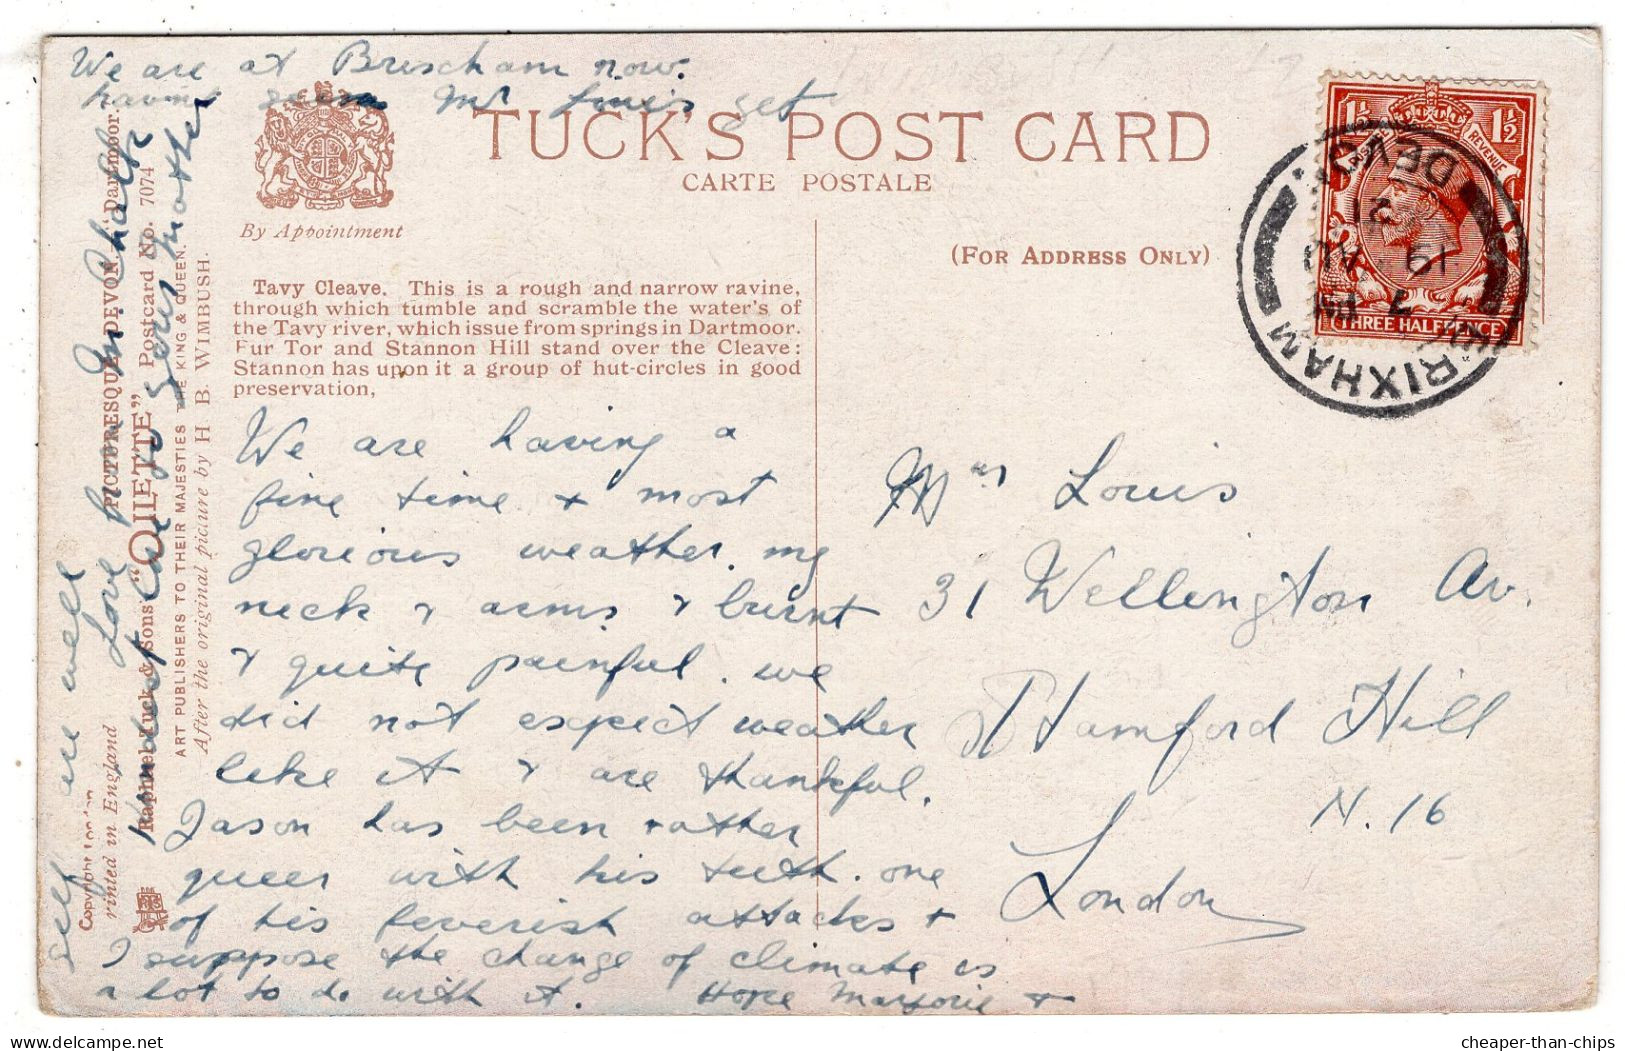 We are at Brischam now.
TUCK'S POST CARD
CARTE POSTALE
By Appointment
(FOR ADDRESS ONLY)
Tavy Cleave. This is a rough and narrow ravine,
through which tumble and scramble the water's of
the Tavy river, which issue from springs in Dartmoor.
Fur Tor and Stannon Hill stand over the Cleave:
Stannon has upon it a group of hut-circles in good
preservation,
We are having a
fine time & most
glorious weather. my
neck & arms & burnt
& quite painful. we
did not expect weather
like it & are thankful.
Jason has been rather
queer with his teeth. one
of his feverish attacks &
I suppose the change of climate is
a lot to do with it. Hope Marjorie &
self are well
Love from
Kindest love to
Mother
Copyright London
rinted in England
PICTURESQUE DEVON, Dartmoor.
Raphael Tuck & Sons' "OILETTE" Postcard No. 7074
ART PUBLISHERS TO THEIR MAJESTIES THE KING & QUEEN.
After the original picture by H. B. WIMBUSH.
Mrs Louis
31 Wellington Av.
Stamford Hill
N. 16
London
1½ 1½
POSTAGE REVENUE
THREE HALFPENCE
BRIXHAM
DEVON
7 PM
19 AU
21
cheaper-than-chips